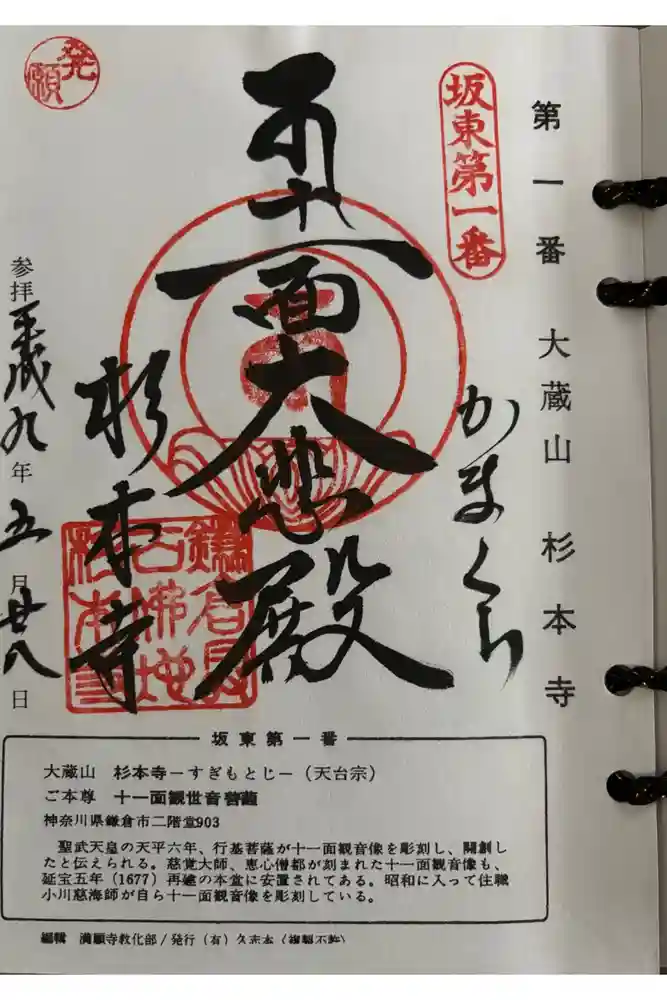 第一番 大蔵山 杉本寺
坂東第一番
発願
かまくら
十一面大悲殿
杉本寺
参拝平成九年五月廿八日
坂東第一番
大蔵山 杉本寺−すぎもとじ−(天台宗)
ご本尊 十一面観世音菩薩
神奈川県鎌倉市二階堂903
聖武天皇の天平六年、行基菩薩が十一面観音像を彫刻し、開創し
たと伝えられる。慈覚大師、恵心僧都が刻まれた十一面観音像も、
延宝五年(1677)再建の本堂に安置されてある。昭和に入って住職
小川慈海師が自ら十一面観音像を彫刻している。
編輯 満願寺教化部/発行(有)久志本(複製不許)